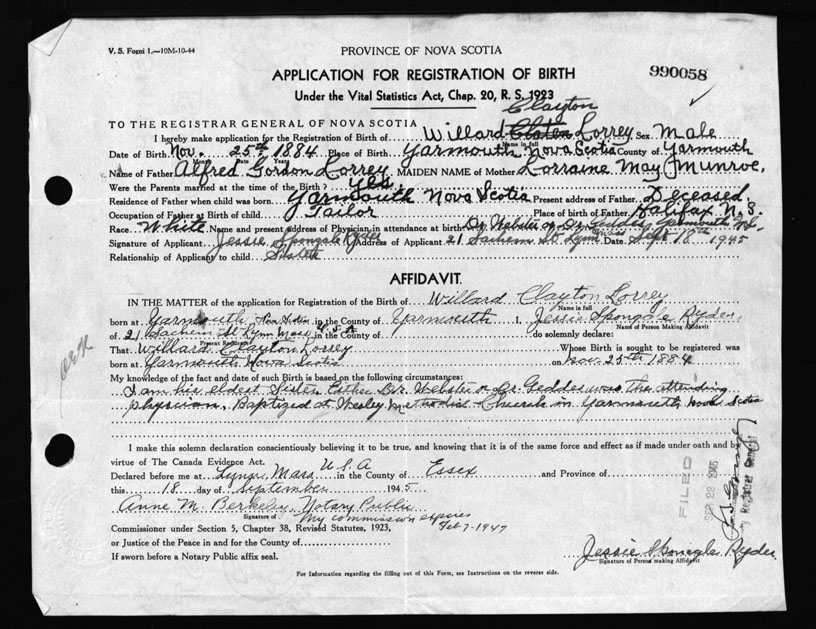 V. S. Form 1.—10M-10-44
PROVINCE OF NOVA SCOTIA
990058
APPLICATION FOR REGISTRATION OF BIRTH
Under the Vital Statistics Act, Chap. 20, R. S. 1923
Clayton
TO THE REGISTRAR GENERAL OF NOVA SCOTIA
I hereby make application for the Registration of Birth of Willard Lorrey Sex Male
Name in full
Date of Birth Nov. 25th 1884 Place of Birth Yarmouth Nova Scotia County of Yarmouth
Month Date Year
Name of Father Alfred Gordon Lorrey MAIDEN NAME of Mother Lorraine May Munroe.
Were the Parents married at the time of Birth? Yes
Residence of Father when child was born. Yarmouth Nova Scotia Present address of Father. Deceased
Occupation of Father at Birth of child Tailor Place of birth of Father. Halifax N.S.
Race. White Name and present address of Physician in attendance at birth Dr. Webster or Dr. Geddes Yarmouth N.S.
Signature of Applicant Jessie Sponagle Ryder Address of Applicant. 21 Sachem St. Lynn Mass Date. Sept 18th 1945
Relationship of Applicant to child Sister
AFFIDAVIT.
IN THE MATTER of the application for Registration of the Birth of Willard Clayton Lorrey
Name in full
born at Yarmouth Nova Scotia in the County of Yarmouth I, Jessie Sponagle Ryder,
Name of Person Making Affidavit
of 21 Sachem St Lynn Mass U.S.A in the County of do solemnly declare:
Present Residence
That Willard Clayton Lorrey Whose Birth is sought to be registered was
born at Yarmouth Nova Scotia on Nov. 25th 1884
My knowledge of the fact and date of such Birth is based on the following circumstances:
I am his eldest Sister. Either Dr. Webster or Dr. Geddes was the attending
physician. Baptized at Wesley Methodist Church in Yarmouth Nova Scotia
I make this solemn declaration conscientiously believing it to be true, and knowing that it is of the same force and effect as if made under oath and by
virtue of The Canada Evidence Act.
Declared before me at Lynn, Mass U S A in the County of Essex and Province of
this 18 day of September 1945
Anne M. Berkeley, Notary Public
Signature of
My commission expires
Feb 7-1947
Commissioner under Section 5, Chapter 38, Revised Statutes, 1923,
or Justice of the Peace in and for the County of
If sworn before a Notary Public affix seal.
Jessie Sponagle Ryder.
Signature of Person making Affidavit
For Information regarding the filling out of this Form, see Instructions on the reverse side.
FILED
Registrar General